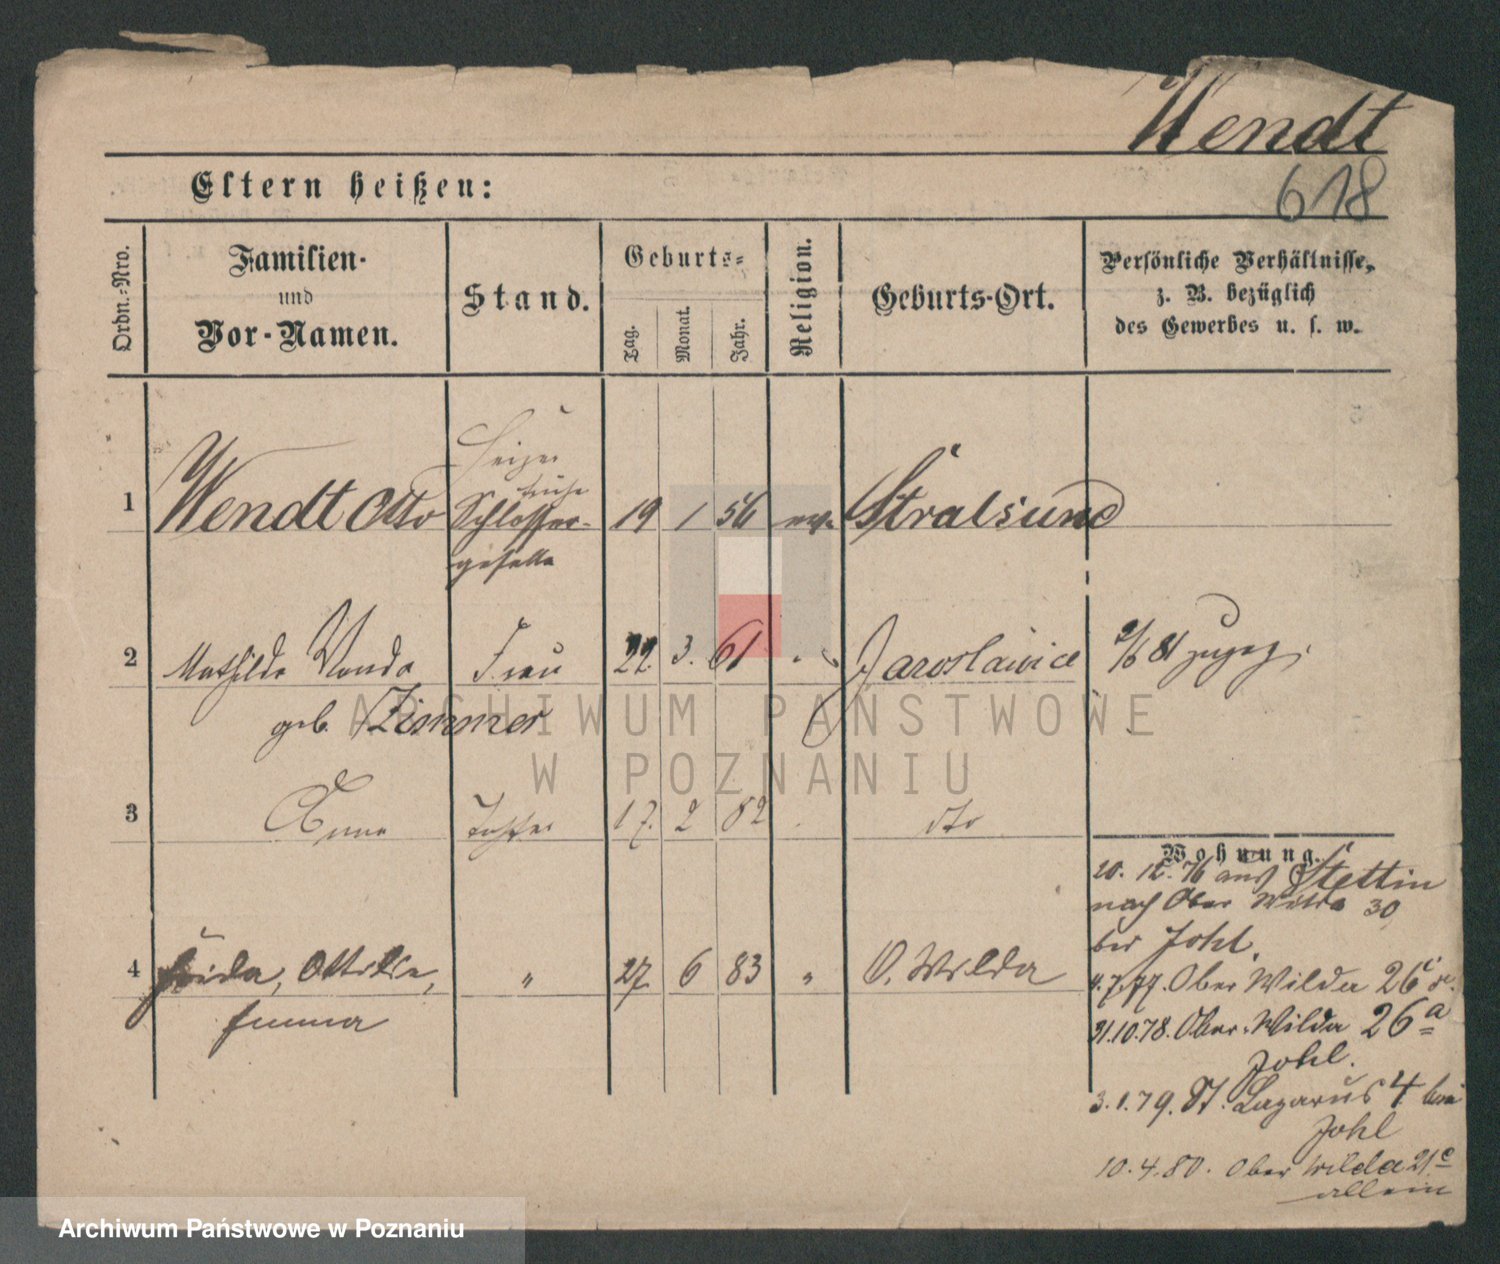 Wendt
618
Eltern heißen:
Ordn.-Nro.
Familien-
und
Vor-Namen.
Stand.
Geburts-
Tag.
Monat.
Jahr.
Religion.
Geburts-Ort.
Persönliche Verhältnisse,
z. B. bezüglich
des Gewerbes u. s. w.
Heizer
früher
1 Wendt Otto Schlosser- 19 1 56 ev. Stralsund
geselle
2 Mathilde Wanda Frau 22. 3. 61 " Jaroslawice 2/6 81 zugez.
geb. Zimmer
3 Anna Tochter 17. 2 82 dto
Wohnung.
20. 12. 76 aus Stettin
nach Ober Wilda 30
bei Johl.
4 Frida, Ottilie, " 27. 6 83 " O. Wilda
Emma
4.7.77. Ober Wilda 26
31.10.78. Ober-Wilda 26a
Johl.
3.1.79. St. Lazarus 4 bei
Johl
10.4.80. Ober Wilda 21c
allein
ARCHIWUM PAŃSTWOWE
W POZNANIU
Archiwum Państwowe w Poznaniu